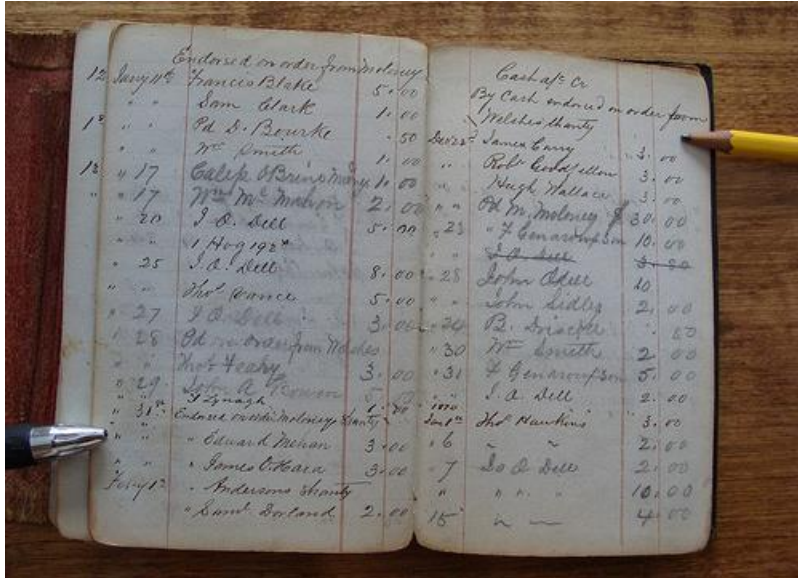 Endorsed on order from Moloney
12 Jany 11th Francis Blake 5.00
" " Sam Clark 1.00
" " Pd D. Bourke .50
" " Wm Smith 1.00
18 " 17 Caleb O Brine 1.00
" " 17 Wm McMahon 2.00
" 20 J O. Dell 5.00
" " 1 Hog 192
" 25 J. O. Dell 8.00
" " Thos Vance 5.00
" 27 J O. Dell 3.00
" 28 Pd on order from Walshes
" " Thos Feahy 3.00
" 29 John A
" " J Lynagh 1.
" 31st Endorsed on order Moloneys Shanty
" " " Edward Mehan 3.00
" " " James O.Hara 3.00
Feby 1st " Andersons Shanty
" Saml Dorland 2.00
Cash a/c Cr
By Cash endorsed on order from
Welshes shanty
Dec 23d James Curry 3.00
" Robt Goodfellow 3.00
" " Hugh Wallace 3.00
" " Pd M. Moloney 30.00
" 23 " 10.00
" " J O Dell
" 28 John Odell 10
" " John Sidley 2.00
B. Driscoll
" 30 Wm Smith 2.00
" 31 5.00
" J. O. Dell 2.00
Thos Hawkins 3.00
" 6 " " 2.00
" 7 Jo O Dell 2.00
" " " " 10.00
15 " " 4.00